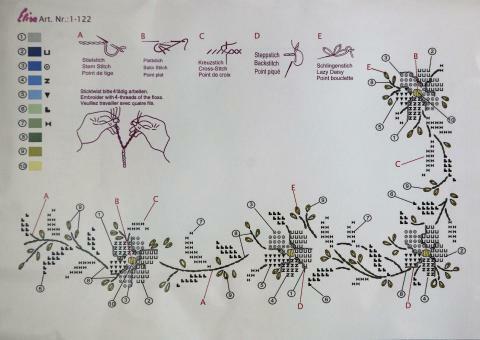 Elisa Art. Nr.:1-122
A
Stielstich
Stem Stitch
Point de tige
B
Plattstich
Satin Stitch
Point plat
C
Kreuzstich
Cross-Stitch
Point de croix
D
Steppstich
Backstitch
Point piqué
E
Schlingenstich
Lazy Daisy
Point bouclette
Stickwist bitte 4fädig arbeiten.
Embroider with 4-threads of the floss.
Veuillez travailler avec quatre fils.
1
2
3
4
5
6
7
8
9
10